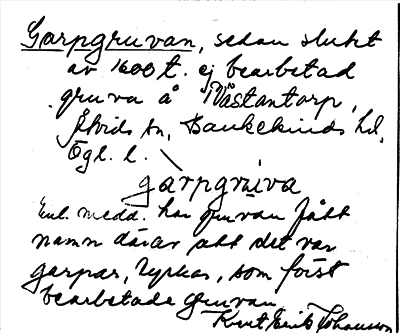 Garpgruvan, sedan slutet
av 1600 t. ej bearbetad
gruva å Västantorp,
Åtvids sn, Bankekinds hd,
Ögl. l.
garpgrúva
Enl. medd. har gruvan fått
namn därav att det var
garpar, tyskar, som först
bearbetade gruvan
Knut Erik Johansson